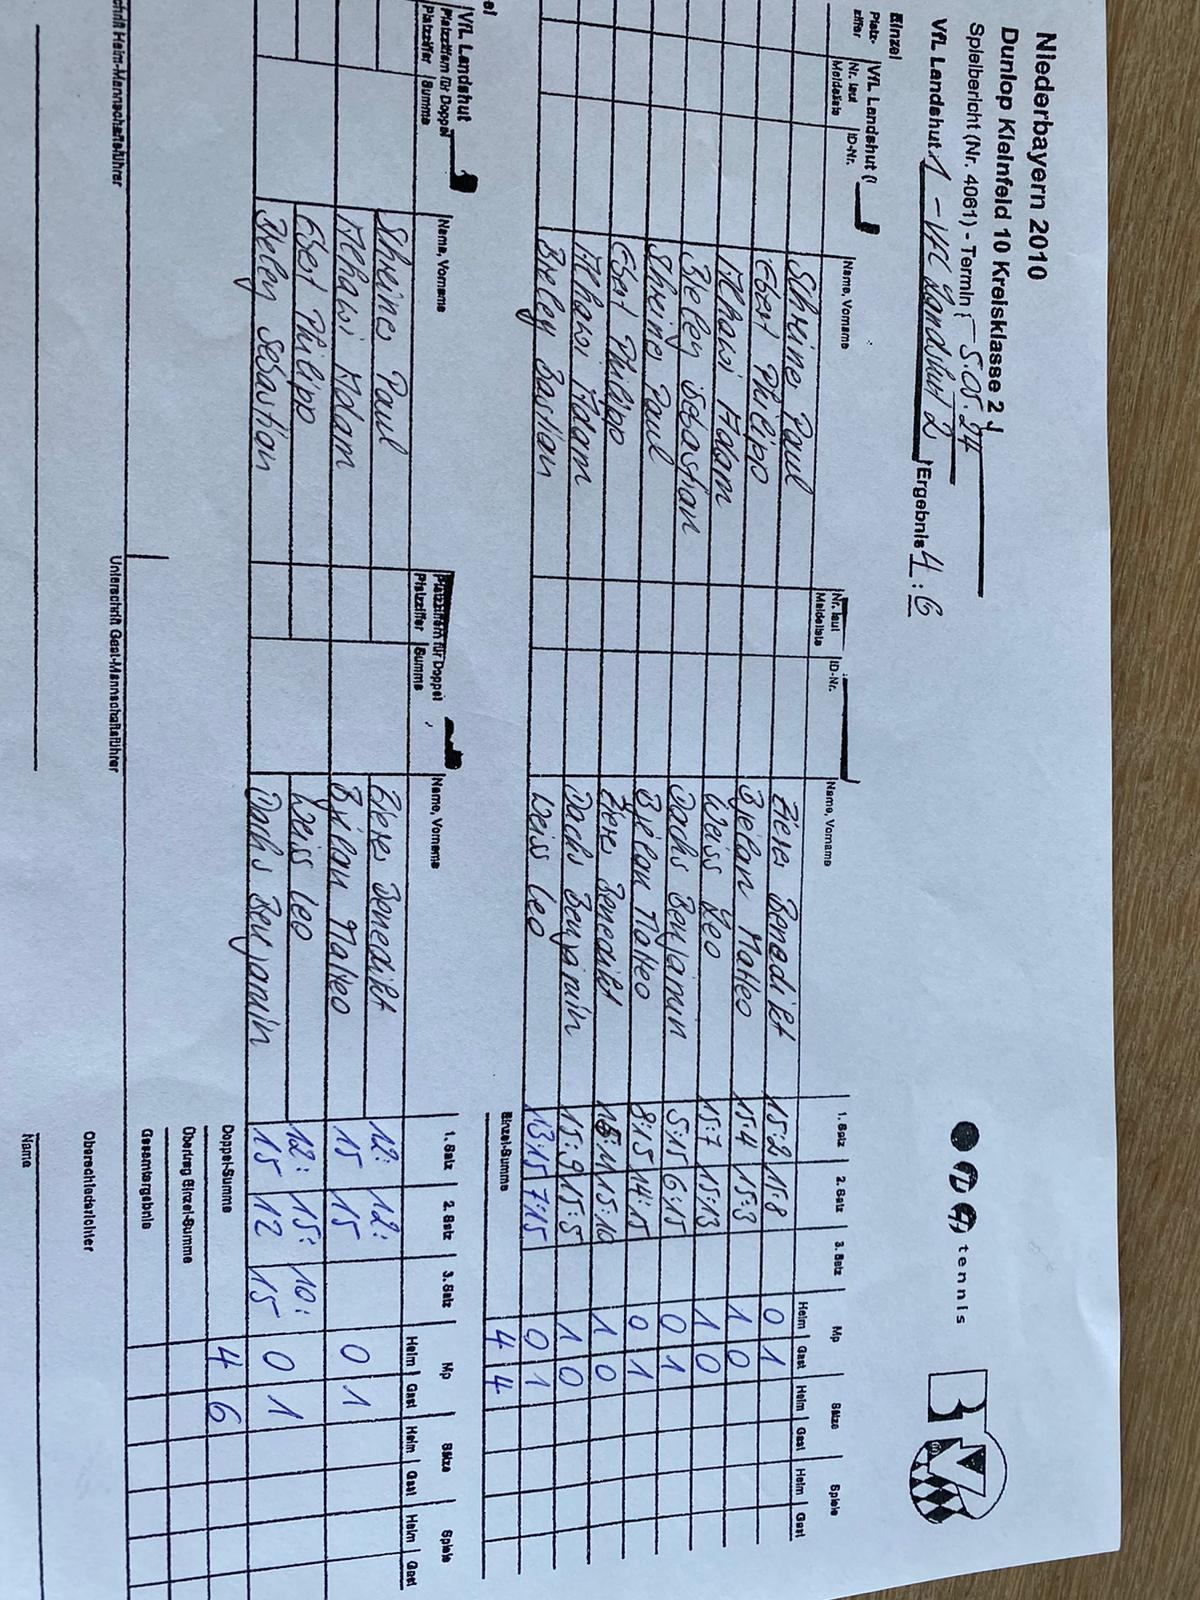 Niederbayern 2010
Dunlop Kleinfeld 10 Kreisklasse 2
Spielbericht (Nr. 4061) - Termin 5.05.24
VfL Landshut 1 - VfL Landshut 2 Ergebnis 4 : 6
tennis
BTV
Einzel
Platz-ziffer VfL Landshut Nr. laut Meldeliste ID-Nr. Name, Vorname Nr. laut Meldeliste ID-Nr. Name, Vorname 1. Satz 2. Satz 3. Satz Mp Sätze Spiele
Heim Gast Heim Gast Heim Gast
Paul Benedikt 15:2 0 1
Ebert Philipp Bielan Matteo 15:4 15:3 1 0
Alhawi Adam Weiss Leo 15:7 15:13 1 0
Sebastian Dachs Benjamin 5:15 6:15 0 1
Paul Matteo 8:15 14:15 0 1
Ebert Philipp Benedikt 15:10 1 0
Alhawi Adam Dachs Benjamin 15:9 15:5 1 0
Bastian Weiss Leo 13:15 7:15 0 1
Einzel-Summe 4 4
VfL Landshut Platzziffern für Doppel Name, Vorname Platzziffern für Doppel Name, Vorname 1. Satz 2. Satz 3. Satz Mp Sätze Spiele
Platzziffer Summe Platzziffer Summe Heim Gast Heim Gast Heim Gast
Paul Benedikt 12: 12:
Alhawi Adam Matteo 15 15 0 1
Ebert Philipp Weiss Leo 12: 15: 10:
Sebastian Dachs Benjamin 15 12 15 0 1
Doppel-Summe 4 6
Übertrag Einzel-Summe
Gesamtergebnis
Unterschrift Gast-Mannschaftsführer Oberschiedsrichter
Name